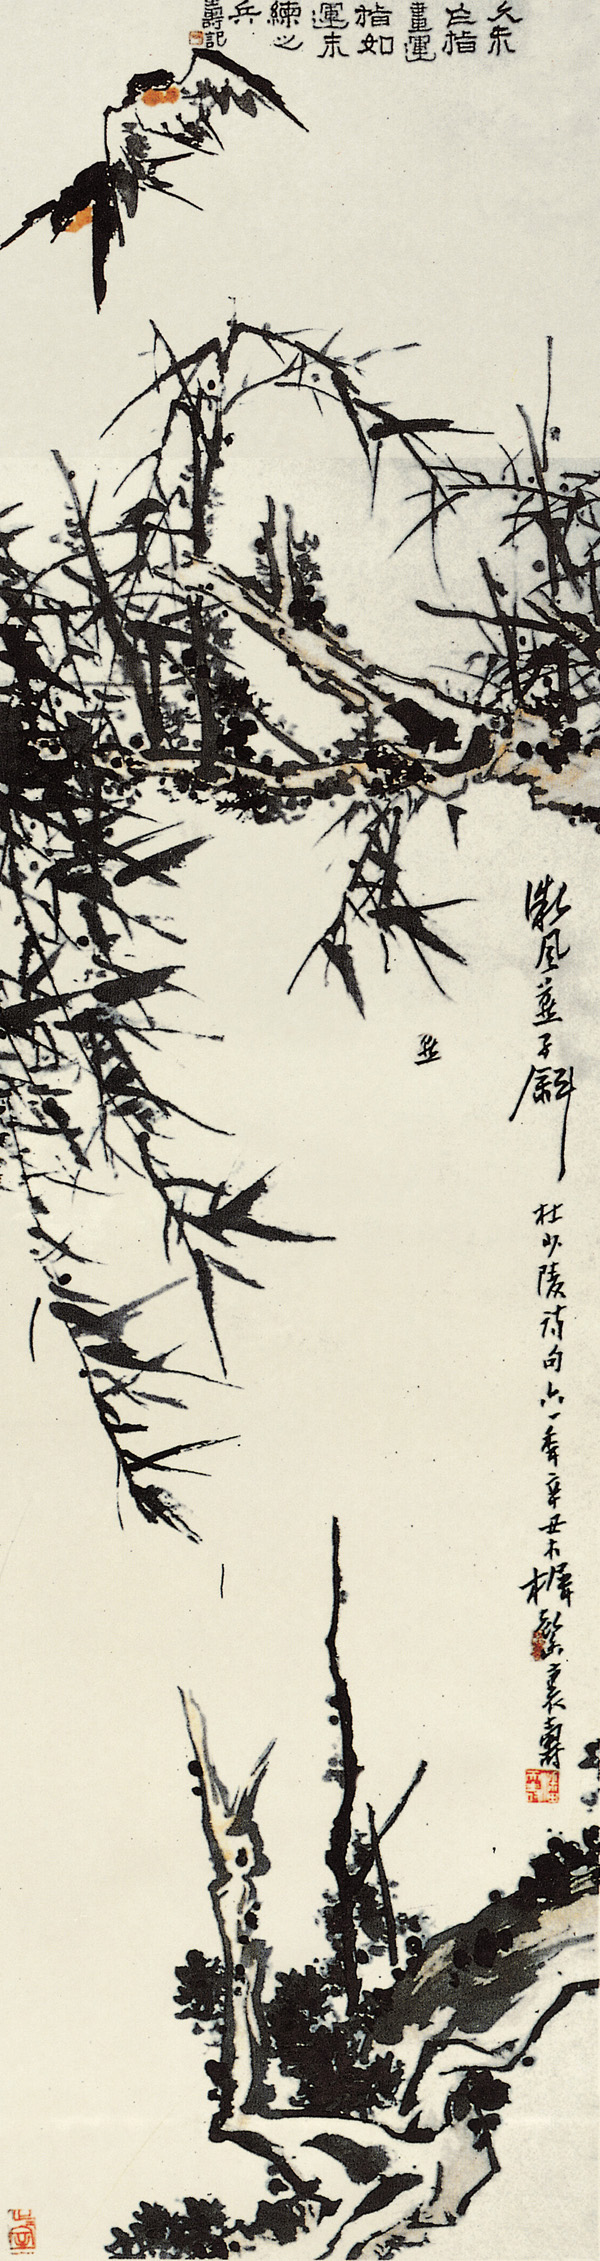 久未
乍指
畫運
指如
運未
練之
兵
壽記
微風燕子斜
杜少陵詩句六一年辛丑木樨裏壽